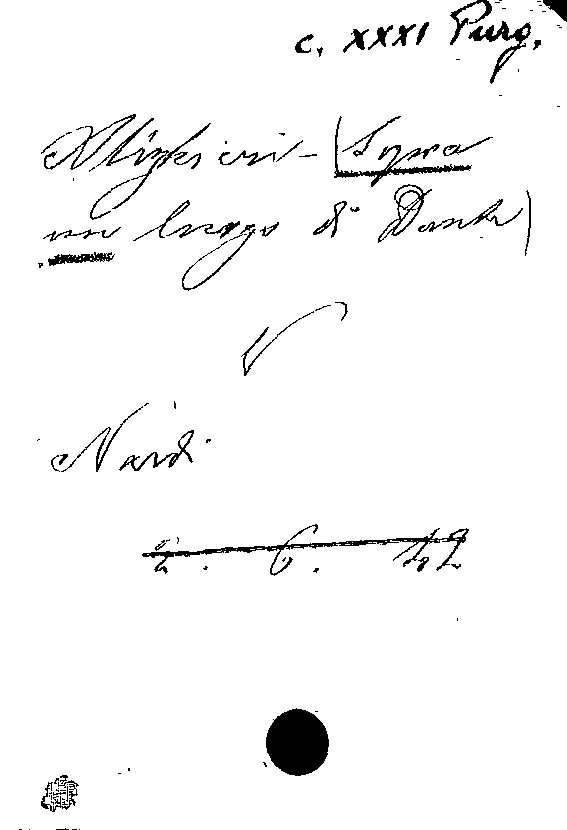 c. XXXI Purg.
Alighieri - (Sopra
un luogo di Dante)
V
Nardi
2. 6. 42